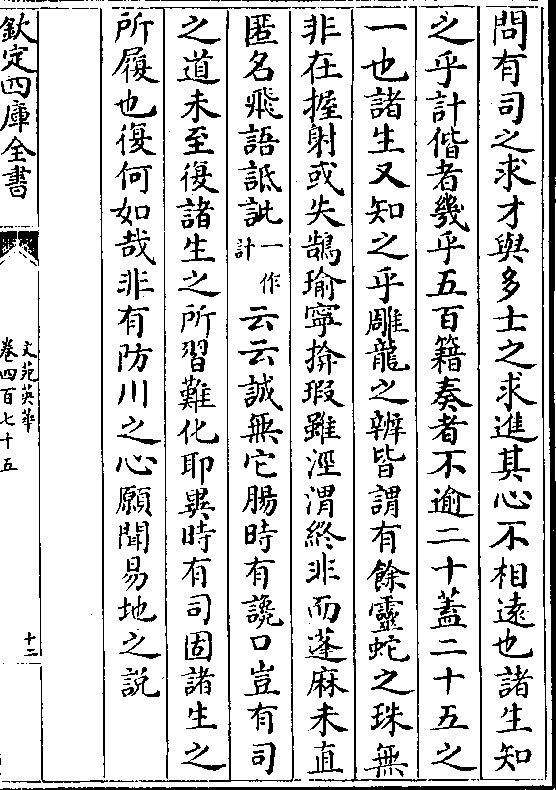 問有司之求才與多士之求進其心不相遠也諸生知
之乎計偕者幾乎五百籍奏者不逾二十蓋二十五之
一也諸生又知之乎雕龍之辨皆謂有餘靈蛇之珠無
非在握射或失鵠瑜寧揜瑕雖涇渭終非而蓬麻未直
匿名飛語詆訿一作計云云誠無它腸時有讒口豈有司
之道未至復諸生之所習難化耶異時有司固諸生之
所履也復何如哉非有防川之心願聞易地之說
欽定四庫全書
文苑英華
卷四百七十五
十二